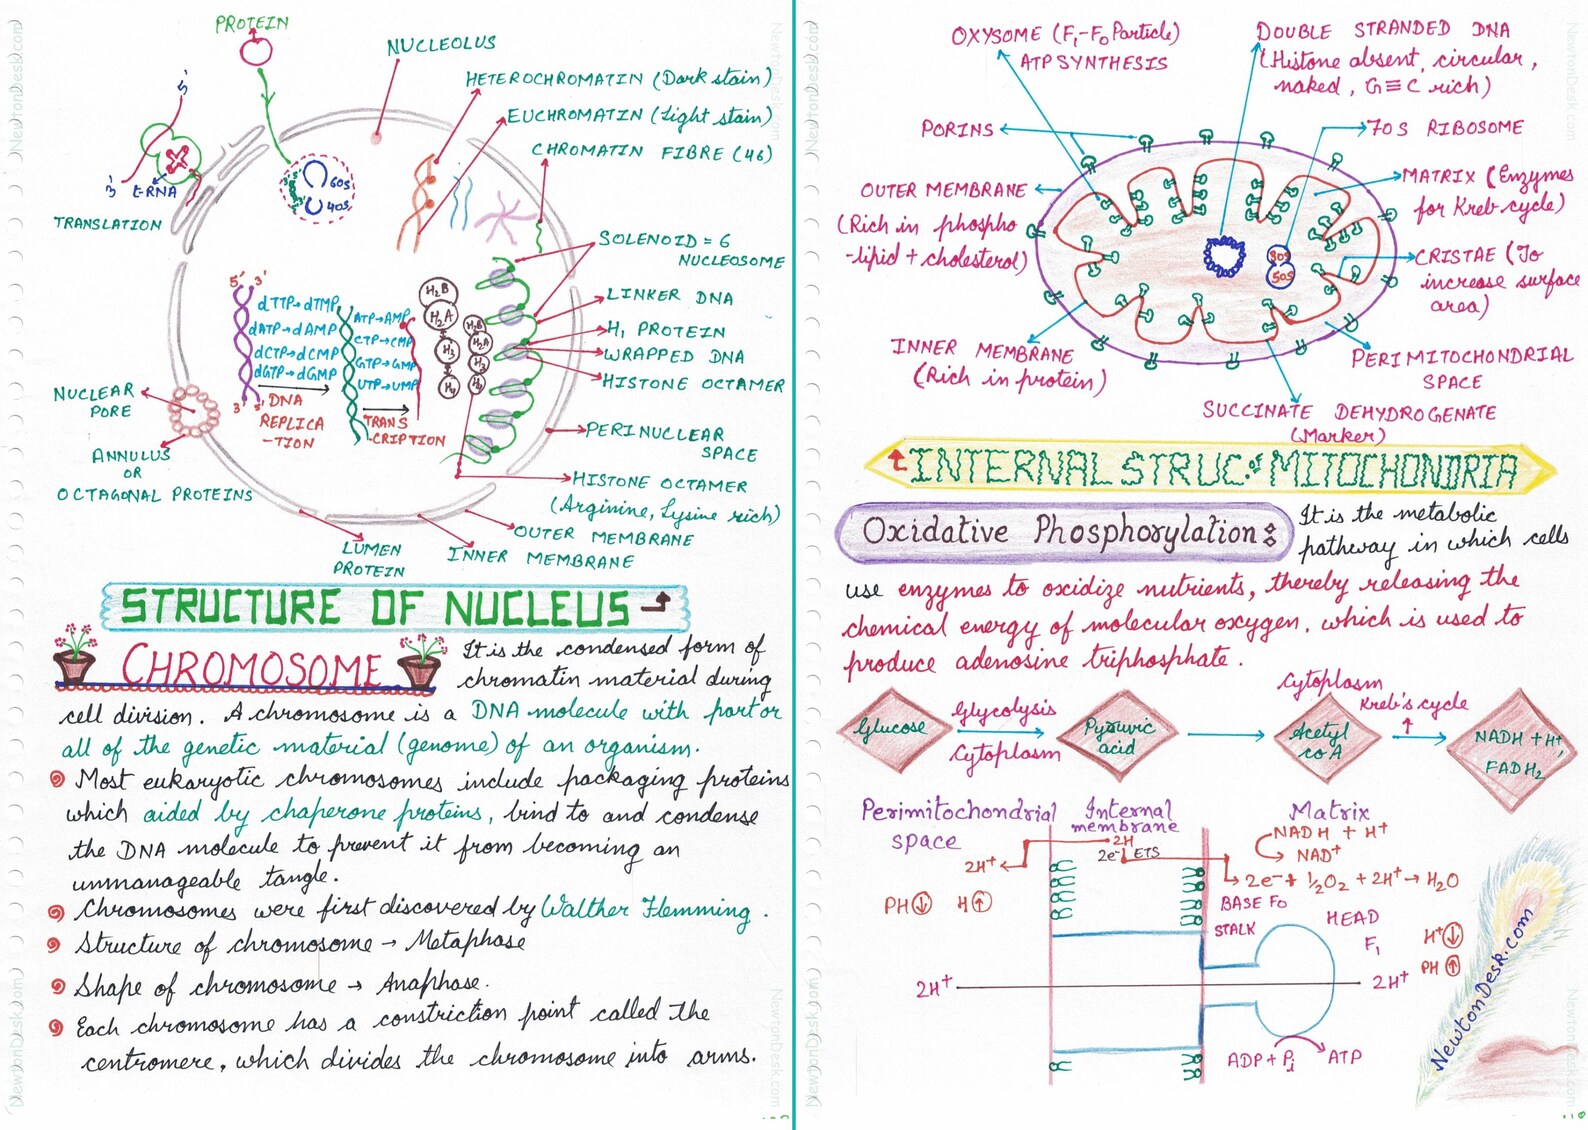 PROTEIN
NUCLEOLUS
HETEROCHROMATIN (Dark stain)
EUCHROMATIN (Light stain)
CHROMATIN FIBRE (46)
5'
3'
t-RNA
TRANSLATION
60S
40S
SOLENOID = 6
NUCLEOSOME
LINKER DNA
H₁ PROTEIN
WRAPPED DNA
HISTONE OCTAMER
5' 3'
dTTP→dTMP
dATP→dAMP
dCTP→dCMP
dGTP→dGMP
3' 5'
DNA
REPLICA
-TION
ATP→AMP
CTP→CMP
GTP→GMP
UTP→UMP
TRANS
-CRIPTION
H₂B
H₂A
H₃
H₄
H₂B
H₂A
H₃
H₄
NUCLEAR
PORE
ANNULUS
OR
OCTAGONAL PROTEINS
PERINUCLEAR
SPACE
HISTONE OCTAMER
(Arginine, Lysine rich)
OUTER MEMBRANE
INNER MEMBRANE
LUMEN
PROTEIN
STRUCTURE OF NUCLEUS
CHROMOSOME
It is the condensed form of
chromatin material during
cell division. A chromosome is a DNA molecule with part or
all of the genetic material (genome) of an organism.
Most eukaryotic chromosomes include packaging proteins
which aided by chaperone proteins, bind to and condense
the DNA molecule to prevent it from becoming an
unmanageable tangle.
Chromosomes were first discovered by Walther Flemming.
Structure of chromosome → Metaphase
Shape of chromosome → Anaphase.
Each chromosome has a constriction point called the
centromere, which divides the chromosome into arms.
NewtonDesk.com
NewtonDesk.com
NewtonDesk.com
NewtonDesk.com
OXYSOME (F₁-F₀ Particle)
ATP SYNTHESIS
DOUBLE STRANDED DNA
(Histone absent, circular,
naked, G≡C rich)
PORINS
70S RIBOSOME
OUTER MEMBRANE
(Rich in phospho
-lipid + cholesterol)
MATRIX (Enzymes
for Kreb cycle)
30S
50S
CRISTAE (To
increase surface
area)
INNER MEMBRANE
(Rich in protein)
PERIMITOCHONDRIAL
SPACE
SUCCINATE DEHYDROGENATE
(Marker)
INTERNAL STRUC. of MITOCHONDRIA
Oxidative Phosphorylation:
It is the metabolic
pathway in which cells
use enzymes to oxidize nutrients, thereby releasing the
chemical energy of molecular oxygen, which is used to
produce adenosine triphosphate.
Glucose
Glycolysis
Cytoplasm
Pyruvic
acid
Cytoplasm
Acetyl
co A
Kreb's cycle
NADH + H⁺,
FADH₂
Perimitochondrial
space
Internal
membrane
Matrix
2H
2e⁻ ETS
2H⁺
NADH + H⁺
NAD⁺
2e⁻ + ½O₂ + 2H⁺ → H₂O
PH↓ H↑
BASE F₀
STALK
HEAD
F₁
H⁺↓
PH↑
2H⁺
2H⁺
ADP + Pi
ATP
NewtonDesk.com
NewtonDesk.com
NewtonDesk.com
NewtonDesk.com
NewtonDesk.com